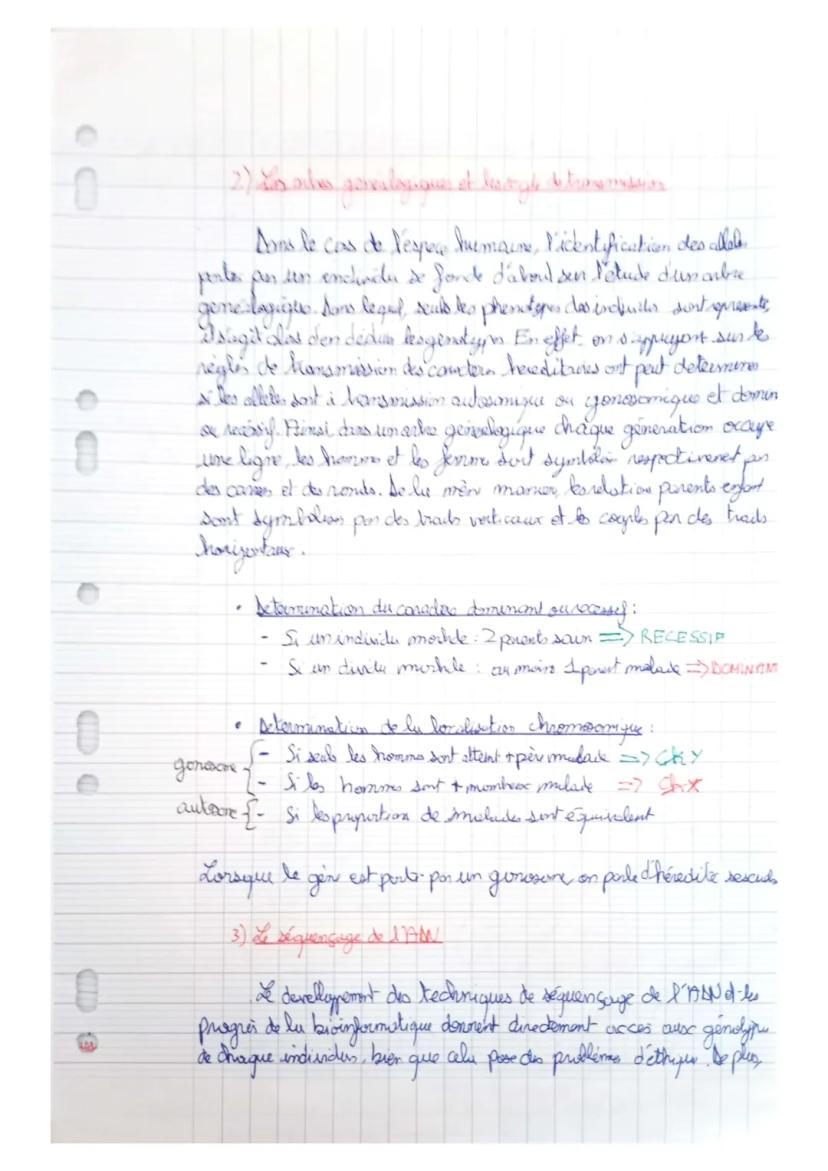 2) Les arbres genealogiques et les regle de transmission
Dans le cas de l'espece humaine, l'identification des allele
portes par un individu se fonde d'abord sur l'étude d'un arbre
genealogique. Dans lequel, seuls les phenotypes des individus sont representés,
il s'agit alors d'en déduire les genotypes. En effet, en s'appuyant sur les
règles de transmission des caractères hereditaires ont peut determiner
si les alleles sont à transmission autosomique ou gonosomique et domin
ou recessif. Ainsi dans un arbre genéalogique chaque géneration occupe
une ligne, les homme et les femme sont symbolisé respectivement par
des carrés et des ronds. De la même manier, les relation parents enfant
sont symbolisan par des traits verticaux et les couples par des traits
horizontaux.
• Determination du caractère dominant ou recessif :
- Si un individu morbide : 2 parents sain => RECESSIF
- Si un dividu morbide : au moins 1 parent malade => DOMINANT
• Determination de la localisation chromosomique :
gonosome { - Si seuls les hommes sont atteint + père malade => Ch Y
- Si les hommes sont + nombreux malade => Ch X
autosome { - Si les proportions de malades sont équivalent
Lorsque le gène est porté par un gonosome, on parle d'hérédité sexuels
3) Le séquençage de l'ADN
Le developpement des techniques de séquençage de l'ADN et les
progrès de la bioinformatique donnent directement acces aux génotype
de chaque individus, bien que cela pose des problèmes d'éthique. De plus,